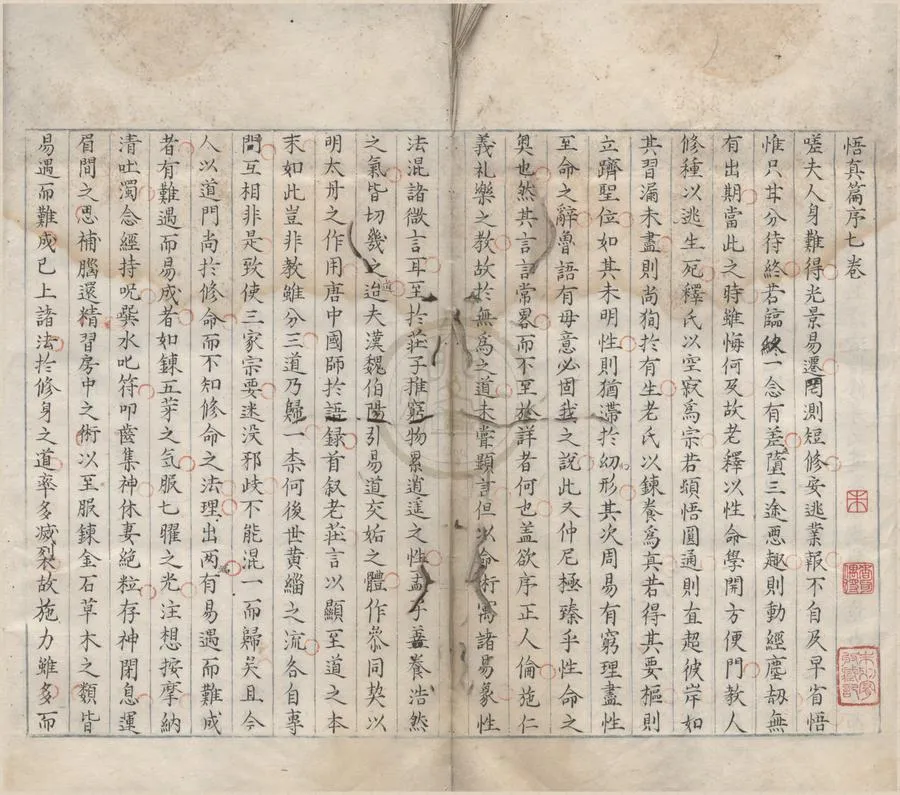 悟真篇序七卷
嗟夫人身難得光景易遷罔測短修安逃業報不自及早省悟
惟只甘分待終若臨終一念有差墮三途悪趣則動經塵刼無
有出期當此之時雖悔何及故老釋以性命學開方便門教人
修種以逃生死釋氏以空寂爲宗若頓悟圓通則直超彼岸如
其習漏未盡則尚狥於有生老氏以鍊養爲真若得其要樞則
立躋聖位如其未明性則猶滯於幻形其次周易有窮理盡性
至命之辭魯語有毋意必固我之說此又仲尼極臻乎性命之
奥也然其言言常畧而不至於詳者何也盖欲序正人倫施仁
義礼樂之教故於無爲之道未甞顯言但以命術寓諸易象性
法混諸微言耳至於莊子推窮物累逍遥之性孟子善養浩然
之氣皆切幾之迨夫漢魏伯陽引易道交姤之體作叅同契以
明太丹之作用唐中國師於語録首叙老莊言以顯至道之本
末如此豈非教雖分三道乃歸一柰何後世黄緇之流各自專
門互相非是致使三家宗要迷没邪歧不能混一而歸矣且今
人以道門尚於修命而不知修命之法理出两有易遇而難成
者有難遇而易成者如鍊五芽之氣服七曜之光注想按摩納
清吐濁念經持呪噀水叱符叩齒集神休妻絶粒存神閉息運
眉間之思補腦還精習房中之術以至服鍊金石草木之類皆
易遇而難成已上諸法於修身之道率多滅裂故施力雖多而